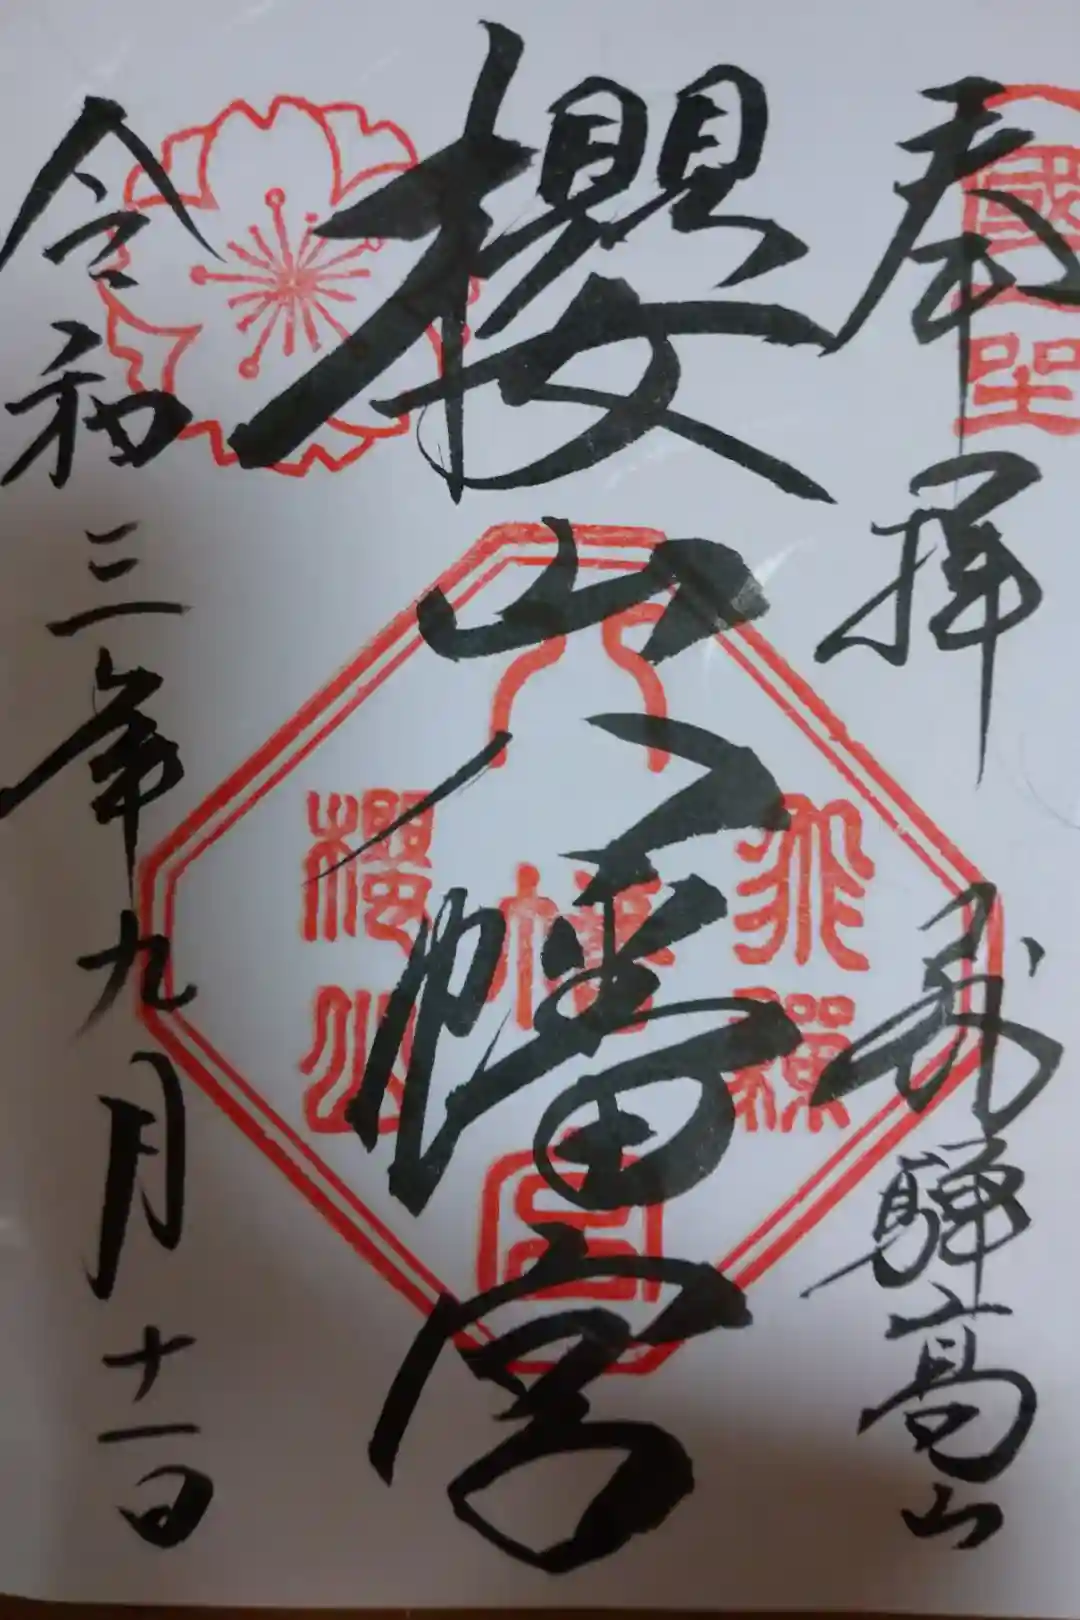 奉拝
飛騨高山
櫻山八幡宮
令和三年九月十一日
國
八幡宮
飛騨
櫻山